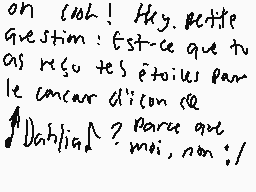 oh cooh! Hey. petite
question : Est-ce que tu
as reçu tes étoiles par
le concour d'icon de
♪Dahlia♪ ? parce que
moi, non :/